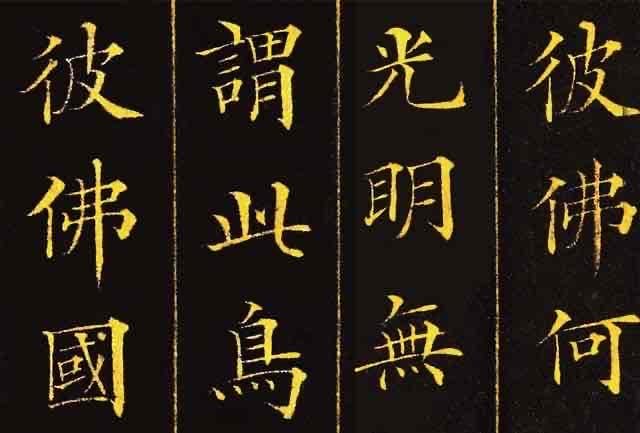 彼佛何
光明無
謂此鳥
彼佛國